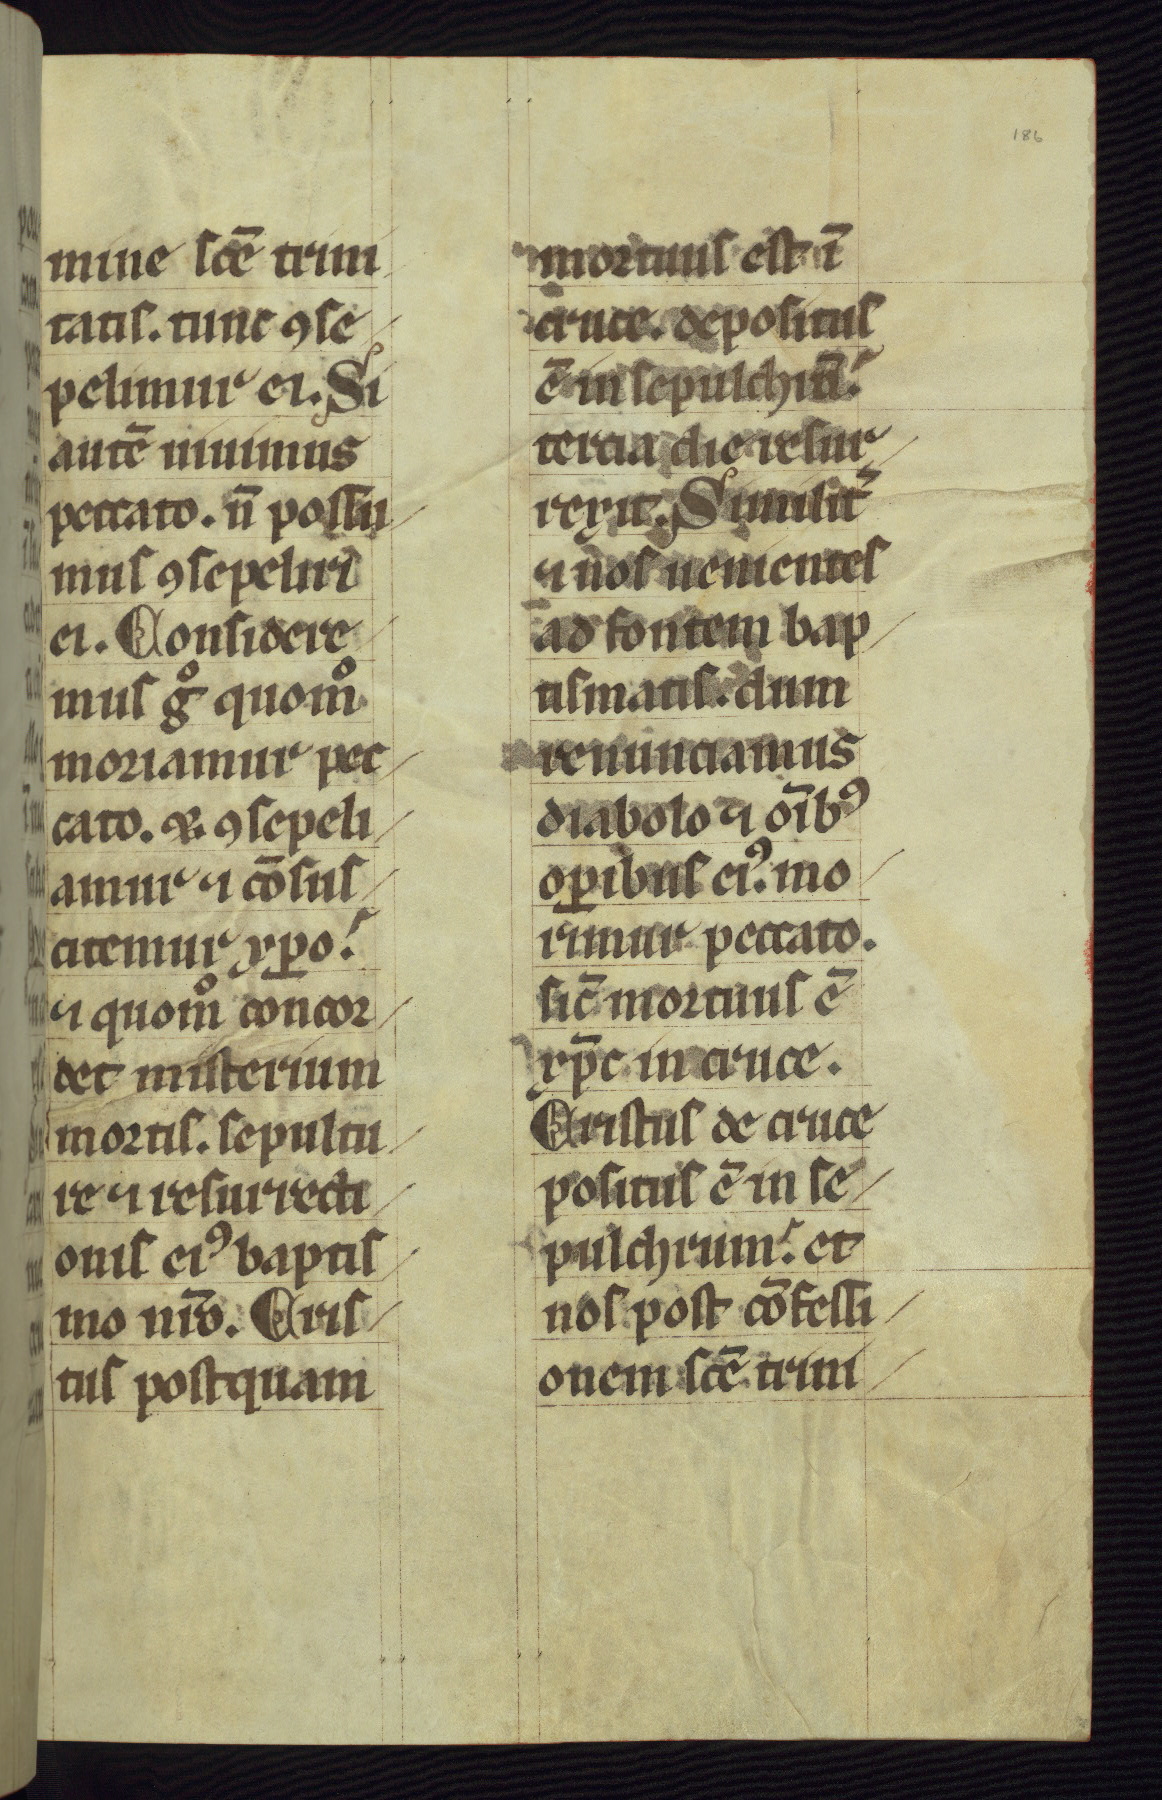 186
mine sc̄e trini
tatis. tunc ꝯse
pelimur ei. Si
autē uiuimus
peccato. n̄ possu
mus ꝯsepeliri
ei. Considere
mus gͦ quomͦ
moriamur pec
cato. ⁊ ꝯsepeli
amur ⁊ cōsus
citemur xp̄o.
⁊ quomͦ concor
det misterium
mortis. sepultu
re ⁊ resurrecti
onis eiꝰ baptis
mo nr̄o. Cris
tus postquam
mortuus est ī
cruce. depositus
ē in sepulchrū.
tercia die resur
rexit. Similit᷑
⁊ nos uenientes
ad fontem bap
tismatis. dum
renunciamus
diabolo ⁊ oībꝰ
oꝑibus eiꝰ. mo
rimur peccato.
sic̄ mortuus ē
xp̄c in cruce.
Cristus de cruce
positus ē in se
pulchrum. et
nos post cōfessi
onem sc̄e trini